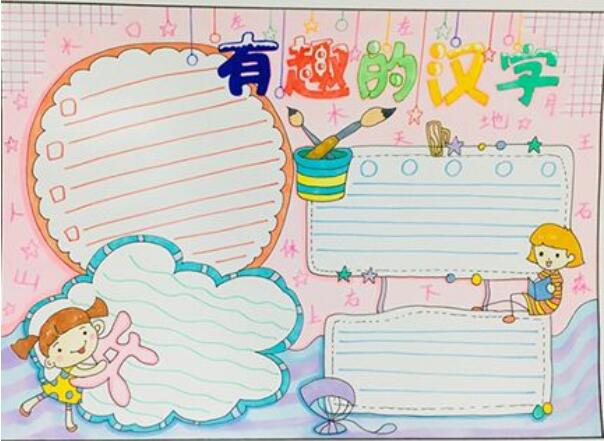 有趣的汉字
木
左
左
木
天
地
月
王
人
石
休
山
森
上
右
下